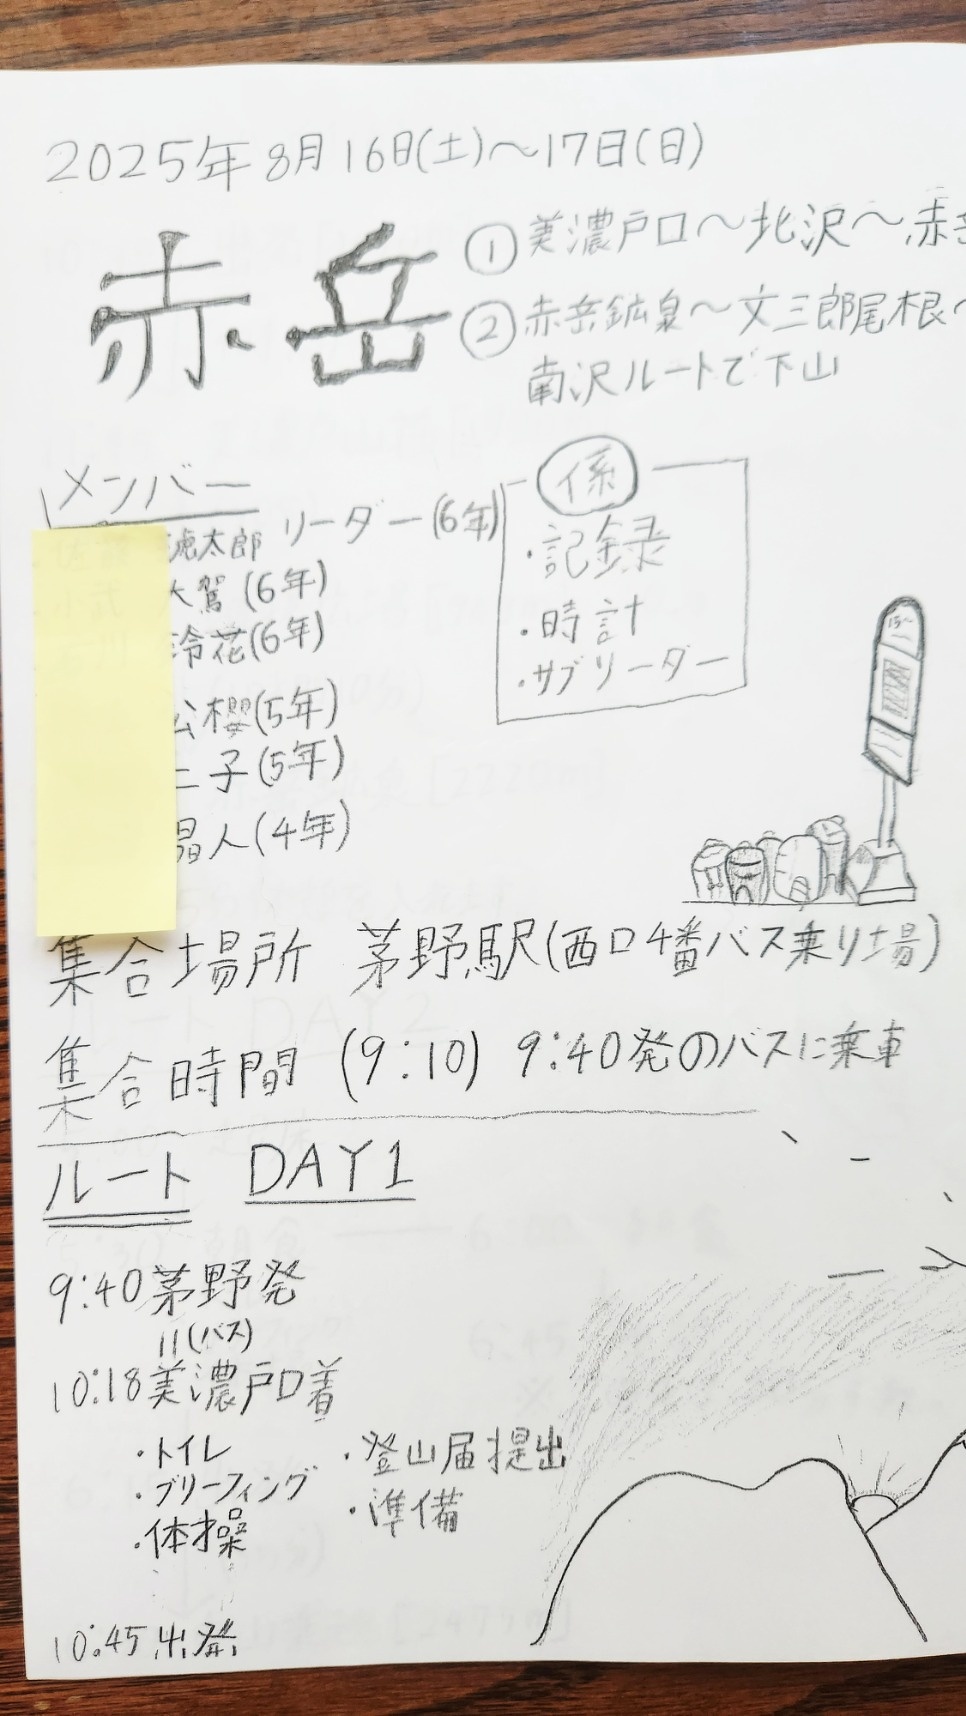 2025年8月16日(土)～17日(日)
赤岳
①美濃戸口～北沢～赤岳
②赤岳鉱泉～文三郎尾根～
南沢ルートで下山
メンバー
虎太郎 リーダー(6年)
大駕(6年)
玲花(6年)
公櫻(5年)
二子(5年)
晶人(4年)
係
・記録
・時計
・サブリーダー
集合場所 茅野駅(西口4番バス乗り場)
集合時間 (9:10) 9:40発のバスに乗車
ルート DAY1
9:40茅野発
〃(バス)
10:18美濃戸口着
・トイレ ・登山届提出
・ブリーフィング ・準備
・体操
10:45出発